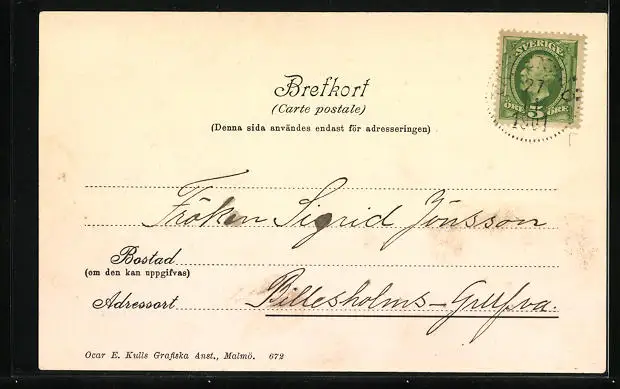 SVERIGE
27
1901
ÖRE 5 ÖRE
Brefkort
(Carte postale)
(Denna sida användes endast för adresseringen)
Fröken Sigrid Jönsson
Bostad
(om den kan uppgifvas)
Adressort Billesholms-Grufva.
Ocar E. Kulls Grafiska Anst., Malmö. 672